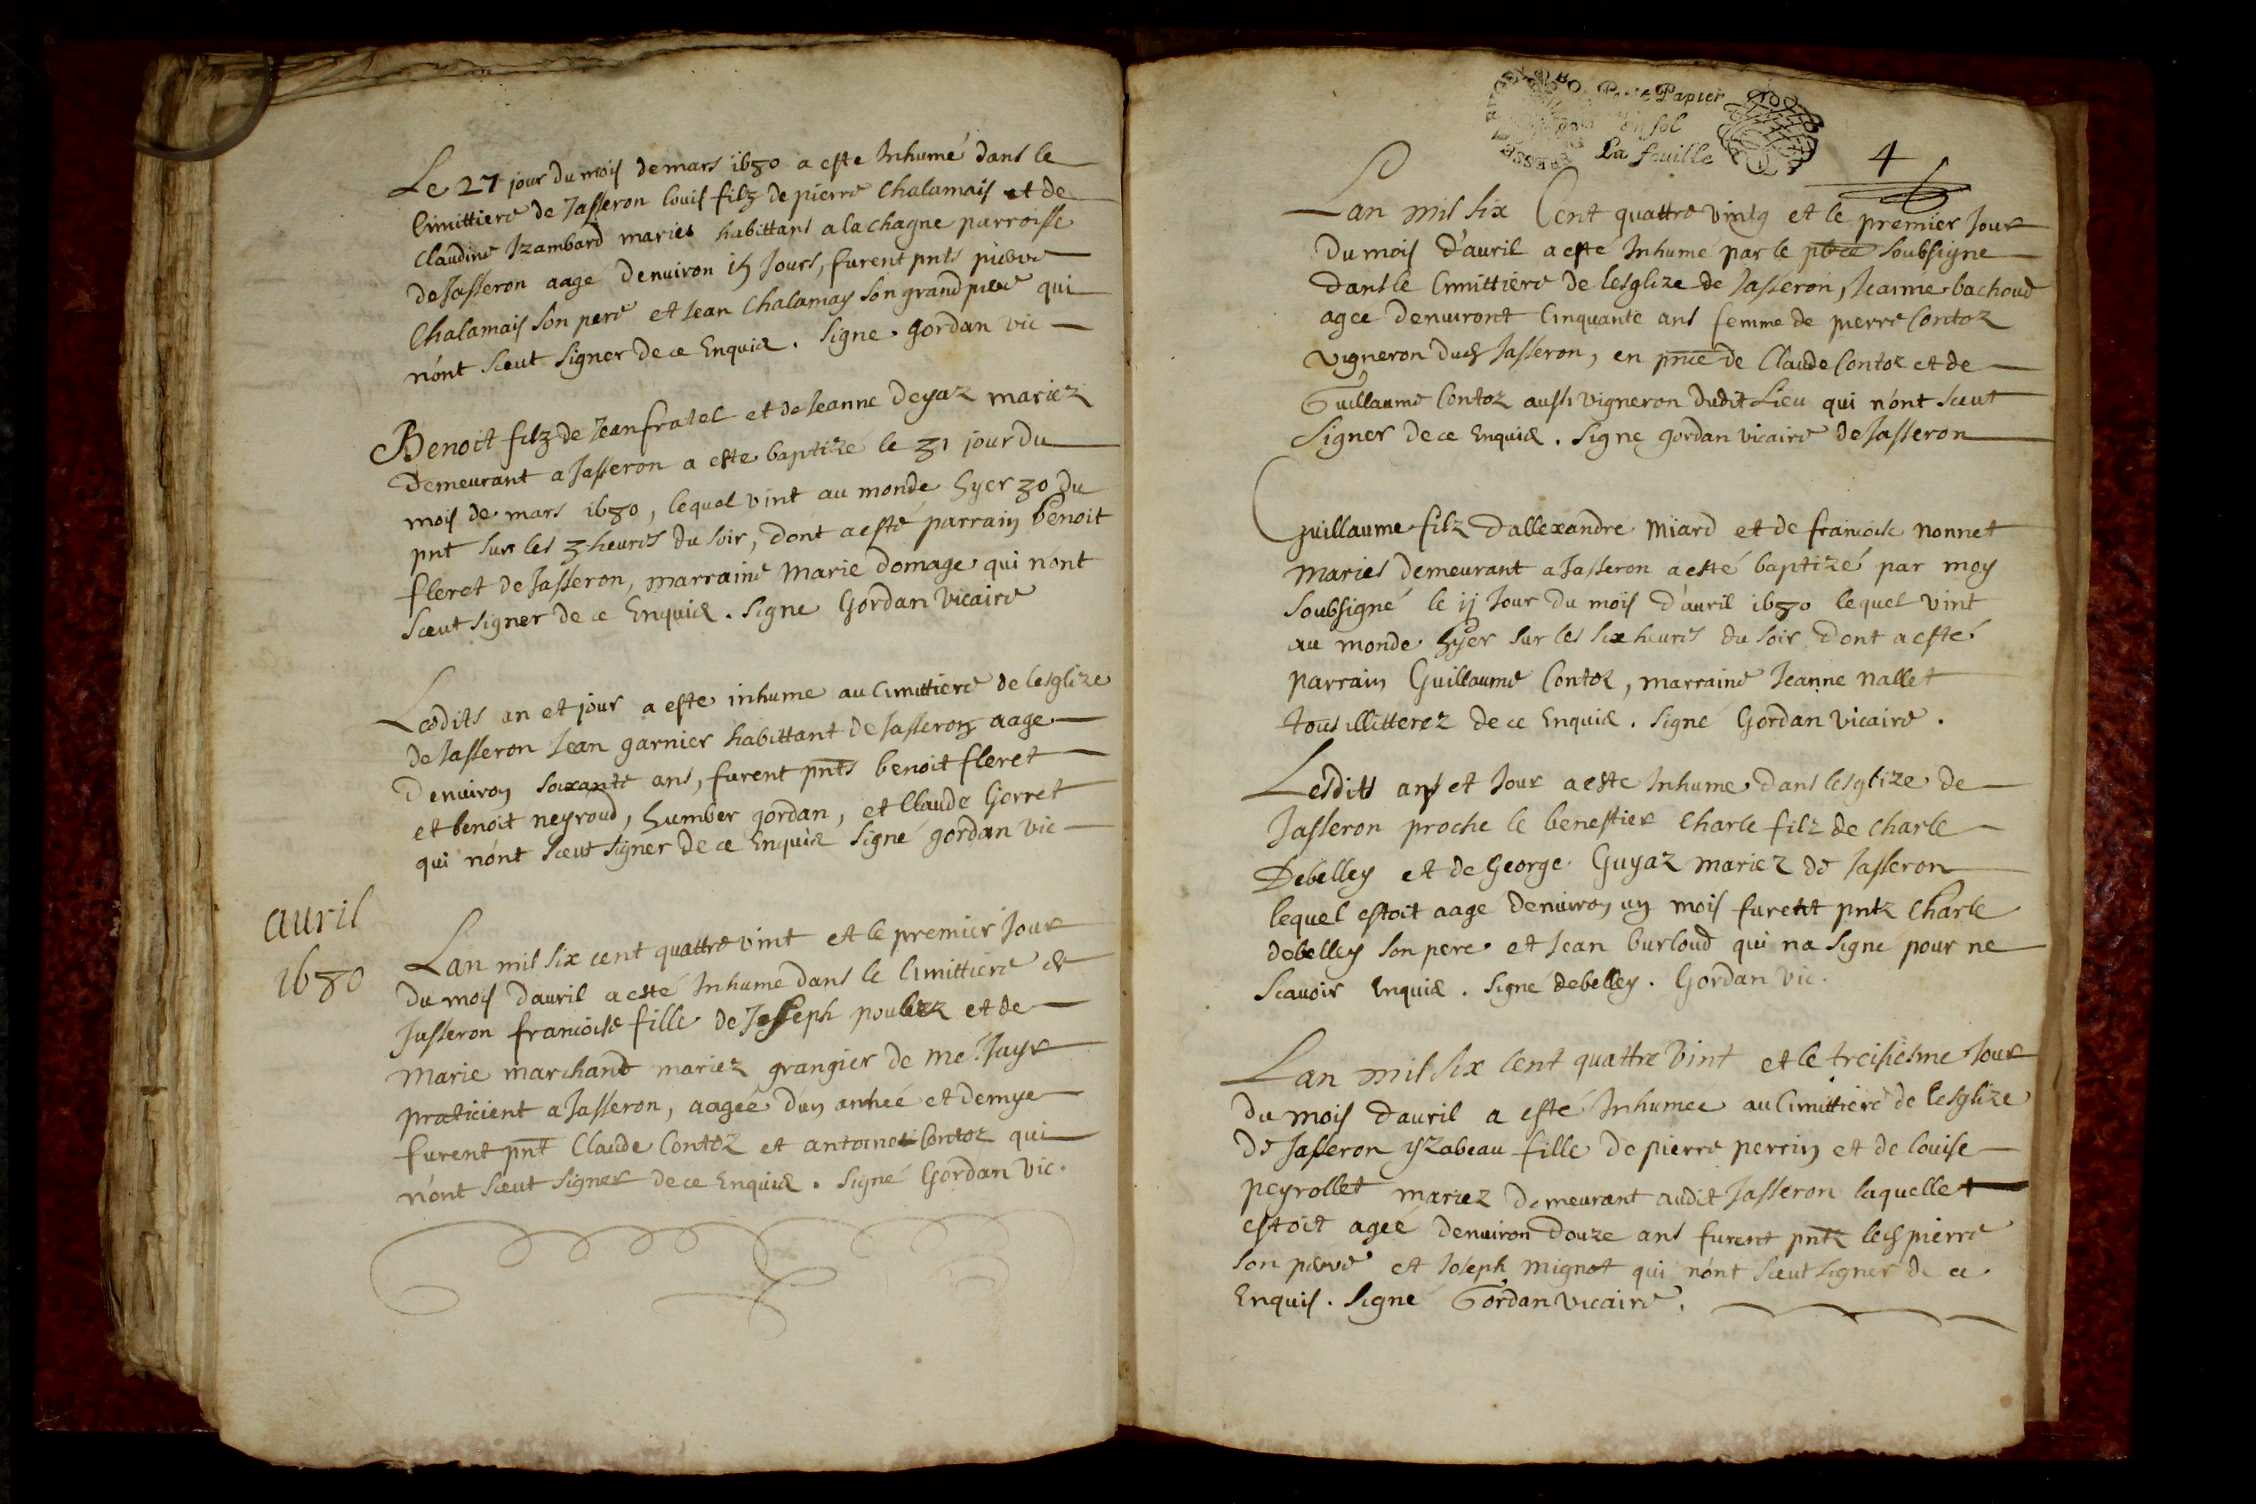 Le 27 jour du mois de mars 1680 a este Inhumé dans le
Cimittiere de Jasseron louis filz de pierre Chalamais et de
Claudine Izambard mariés habittans a la chagne parroisse
de Jasseron aage denuiron 15 Jours, furent pnts pierre
Chalamais son pere et Jean Chalamay son grand pere qui
n'ont sceut signer de ce Enquis. Signe. gordan vic
Benoit filz de Jean fratel et de Jeanne Deyaz mariez
Demeurant a Jasseron a este baptizé le 31 jour du
mois de mars 1680, lequel vint au monde hyer 30 du
pnt sur les 3 heures du soir, dont a esté parrain benoit
fleret de Jasseron, marraine Marie domage qui n'ont
sceut signer de ce Enquis. Signe Gordan Vicaire
Lesdits an et jour a este inhume au Cimittiere de lesglize
de Jasseron Jean garnier habittant de Jasseron aage
Denuiron soixante ans, furent pnts benoit fleret
et benoit neyroud, humber gordan, et Claude Gorret
qui n'ont sceut signer de ce Enquis Signé gordan vic
auril
1680
Lan mil six cent quattre vint et le premier Jour
du mois dauril a esté Inhume dans le Cimittiere de
Jasseron francoise fille de Joseph
et de
Marie marchand mariez grangier de Me Jayr
praticient a Jasseron, aagée d'un année et demye
furent pnt Claude Contoz et antoinoz Contoz qui
n'ont sceut signer de ce Enquis. Signé Gordan vic.
Petit Papier
un sol
La feuille
4
Lan mil six Cent quattre vintg et le premier Jour
du mois d'auril a esté Inhumé par le pbre soubsigne
dans le Cimittiere de lesglize de Jasseron, Jeanne bachoud
agee denuiront Cinquante ans femme de pierre Contoz
vigneron dud Jasseron, en pnce de Claude Contoz et de
Guillaume Contoz aussi vigneron dudit Lieu qui n'ont sceut
Signer de ce Enquis. Signe gordan vicaire de Jasseron
Guillaume filz Dallexandre Miard et de francoise Nonnet
Maries demeurant a Jasseron a esté baptizé par moy
Soubsigné le ij Jour du mois d'auril 1680 lequel vint
au monde hyer sur les six heures du soir dont a esté
parrain Guillaume Contoz, marraine Jeanne Nallet
tous illitterez de ce Enquis. Signé Gordan Vicaire.
Lesdits ans et Jour a este Inhume dans lesglize de
Jasseron proche le benestier Charle filz de Charle
Debelley et de George Guyaz mariez de Jasseron
lequel estoit aage denuiron un mois furent pntz Charle
debelley son pere et Jean burloud qui na signe pour ne
Scauoir Enquis. Signé debelley. Gordan vic.
Lan mil six Cent quattre vint et le treisiesme Jour
du mois dauril a esté Inhumee au Cimittiere de lesglize
de Jasseron yzabeau fille de pierre perrin et de louise
peyrollet mariez demeurant audit Jasseron laquelle
estoit ageé denuiron douze ans furent pntz led pierre
son pere et Joseph mignot qui n'ont sceut signer de ce
Enquis. Signé Gordan vicaire.